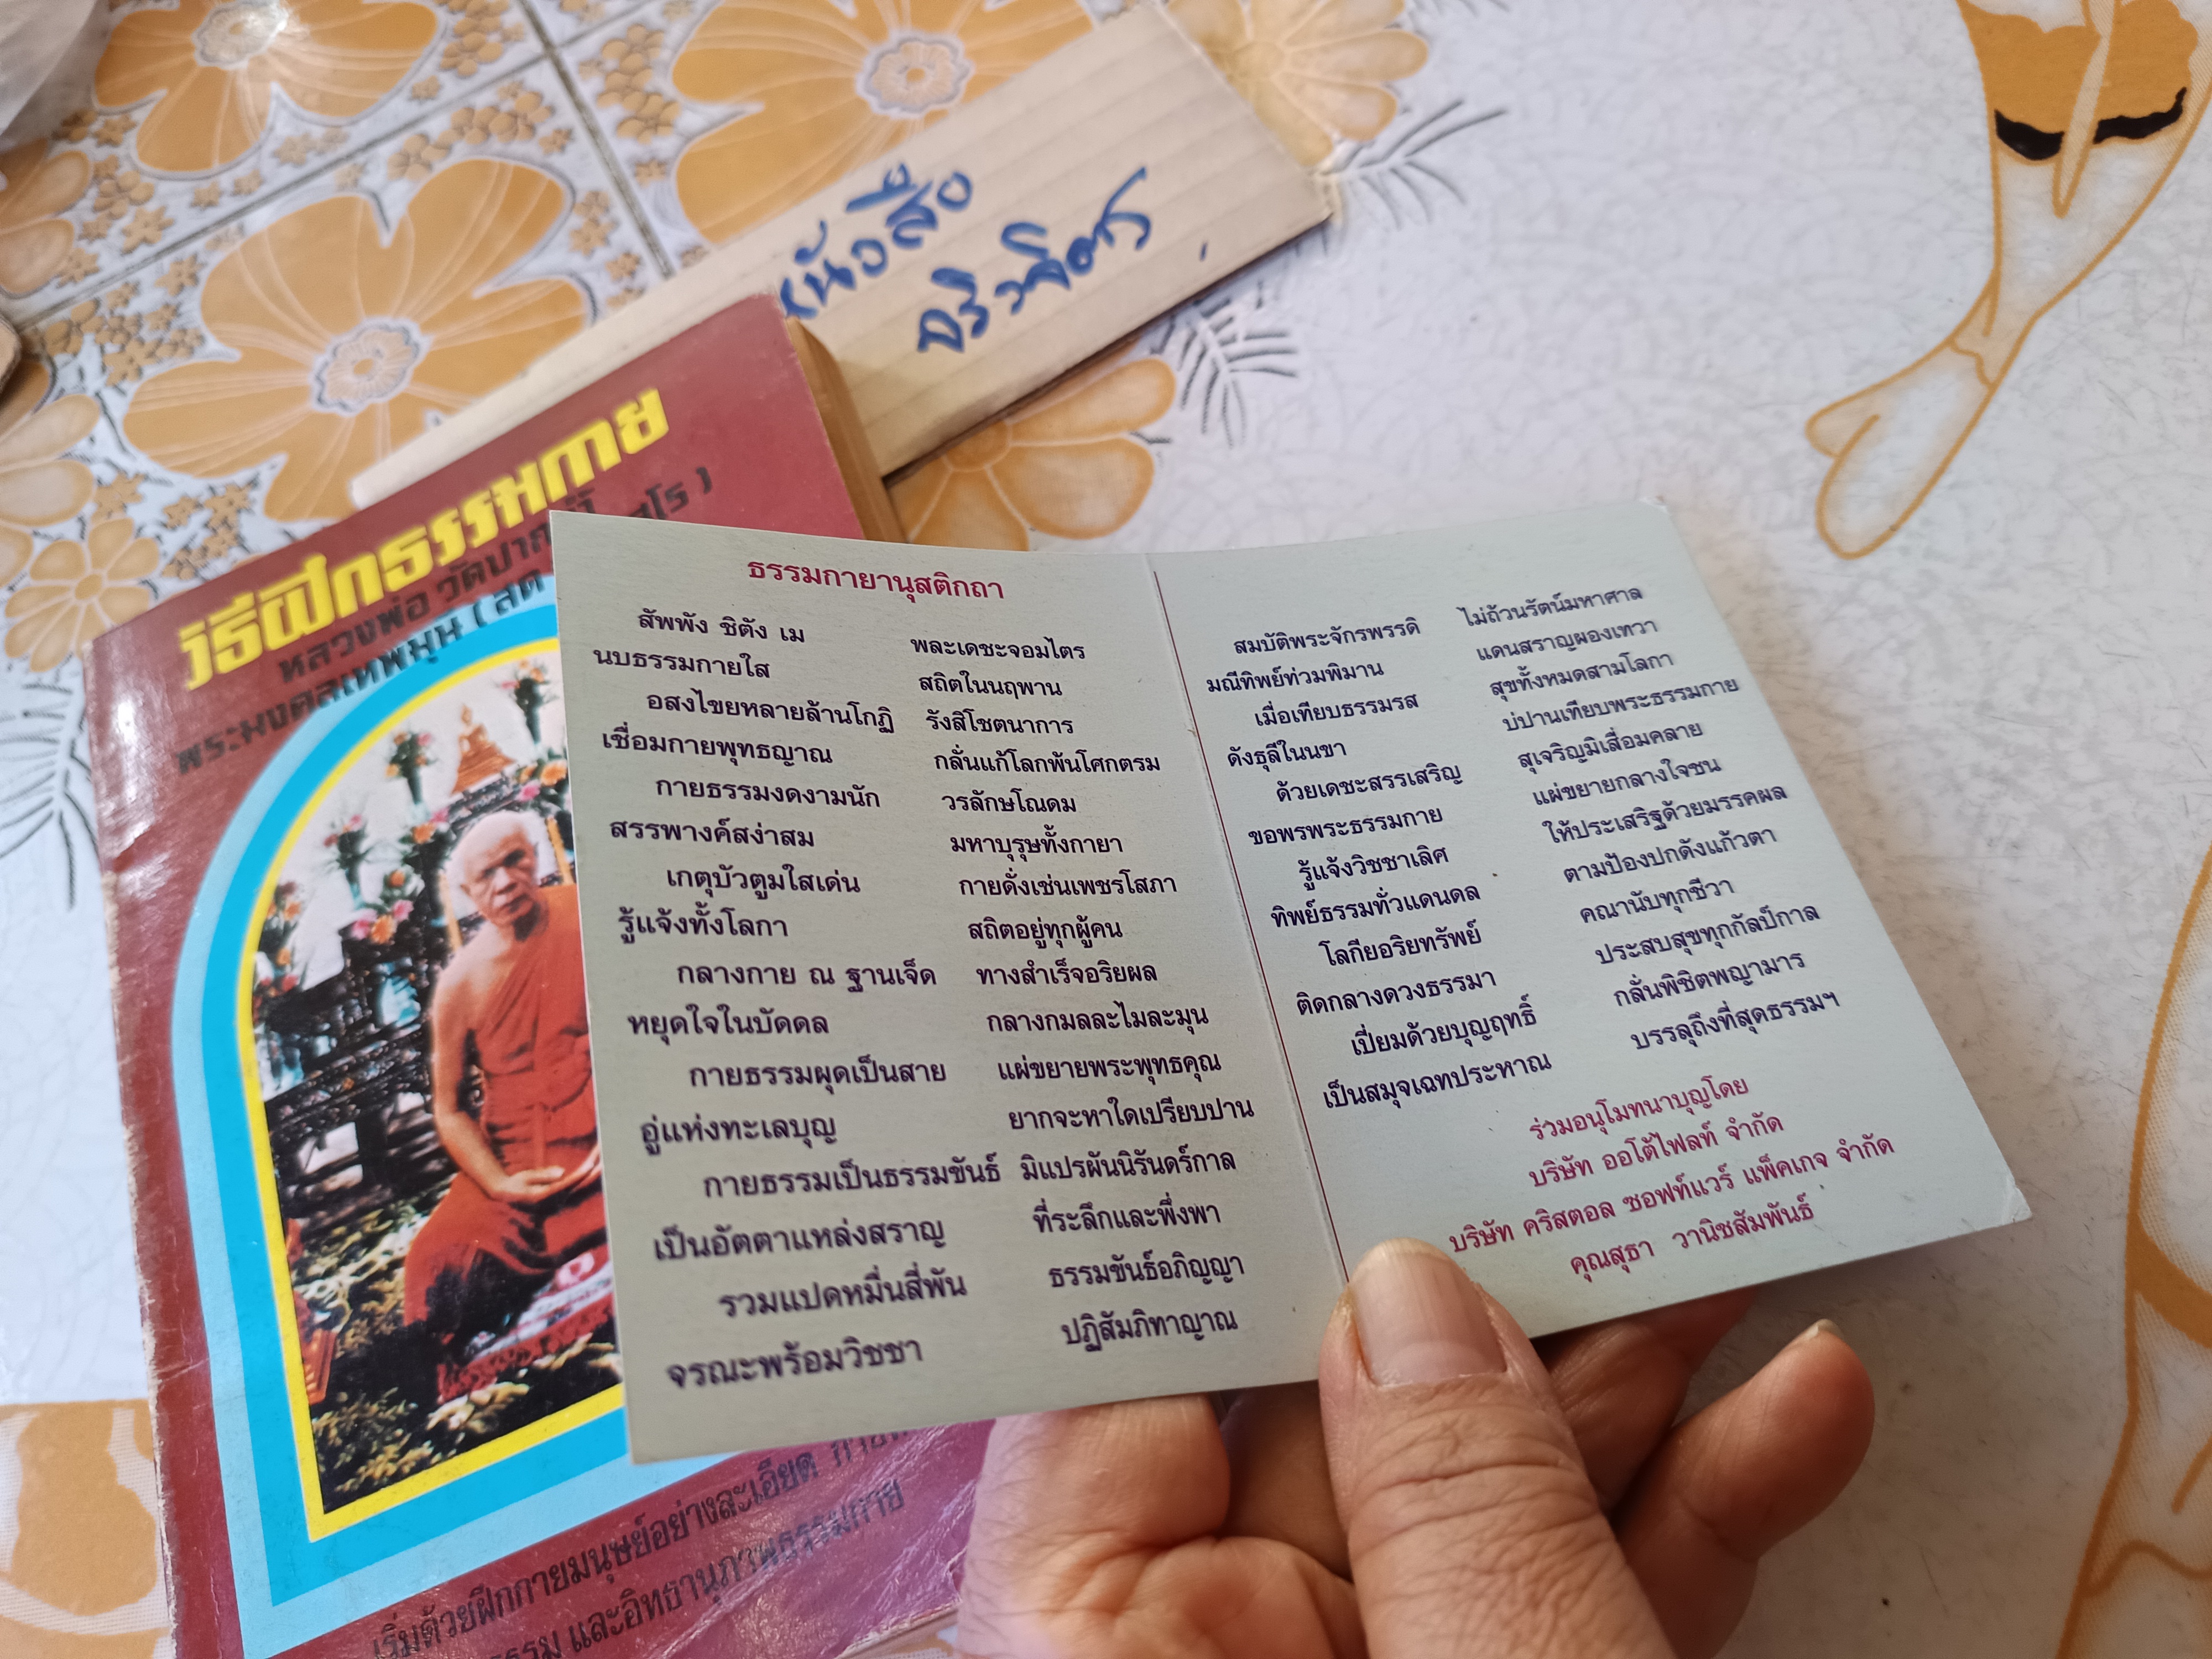 หนังสือ
จริงจิตร
วิธีฝึกธรรมกาย
หลวงพ่อ วัดปากน้ำ
พระมงคลเทพมุนี (สด
เริ่มด้วยฝึกกายมนุษย์อย่างละเอียด
และอิทธานุภาพธรรมกาย
ธรรมกายานุสติกถา
สัพพัง ชิตัง เม พละเดชะจอมไตร
นบธรรมกายใส สถิตในนฤพาน
อสงไขยหลายล้านโกฏิ รังสิโชตนาการ
เชื่อมกายพุทธญาณ กลั่นแก้โลกพ้นโศกตรม
กายธรรมงดงามนัก วรลักษโณดม
สรรพางค์สง่าสม มหาบุรุษทั้งกายา
เกตุบัวตูมใสเด่น กายดั่งเช่นเพชรโสภา
รู้แจ้งทั้งโลกา สถิตอยู่ทุกผู้คน
กลางกาย ณ ฐานเจ็ด ทางสำเร็จอริยผล
หยุดใจในบัดดล กลางกมลละไมละมุน
กายธรรมผุดเป็นสาย แผ่ขยายพระพุทธคุณ
อู่แห่งทะเลบุญ ยากจะหาใดเปรียบปาน
กายธรรมเป็นธรรมขันธ์ มิแปรผันนิรันดร์กาล
เป็นอัตตาแหล่งสราญ ที่ระลึกและพึ่งพา
รวมแปดหมื่นสี่พัน ธรรมขันธ์อภิญญา
จรณะพร้อมวิชชา ปฏิสัมภิทาญาณ
สมบัติพระจักรพรรดิ ไม่ถ้วนรัตน์มหาศาล
มณีทิพย์ท่วมพิมาน แดนสราญผองเทวา
เมื่อเทียบธรรมรส สุขทั้งหมดสามโลกา
ดังธุลีในนขา บ่ปานเทียบพระธรรมกาย
ด้วยเดชะสรรเสริญ สุเจริญมิเสื่อมคลาย
ขอพรพระธรรมกาย แผ่ขยายกลางใจชน
รู้แจ้งวิชชาเลิศ ให้ประเสริฐด้วยมรรคผล
ทิพย์ธรรมทั่วแดนดล ตามป้องปกดังแก้วตา
โลกียอริยทรัพย์ คณานับทุกชีวา
ติดกลางดวงธรรมา ประสบสุขทุกกัลป์กาล
เปี่ยมด้วยบุญฤทธิ์ กลั่นพิชิตพญามาร
เป็นสมุจเฉทประหาณ บรรลุถึงที่สุดธรรมฯ
ร่วมอนุโมทนาบุญโดย
บริษัท ออโต้ไฟลท์ จำกัด
บริษัท คริสตอล ซอฟท์แวร์ แพ็คเกจ จำกัด
คุณสุธา วานิชสัมพันธ์